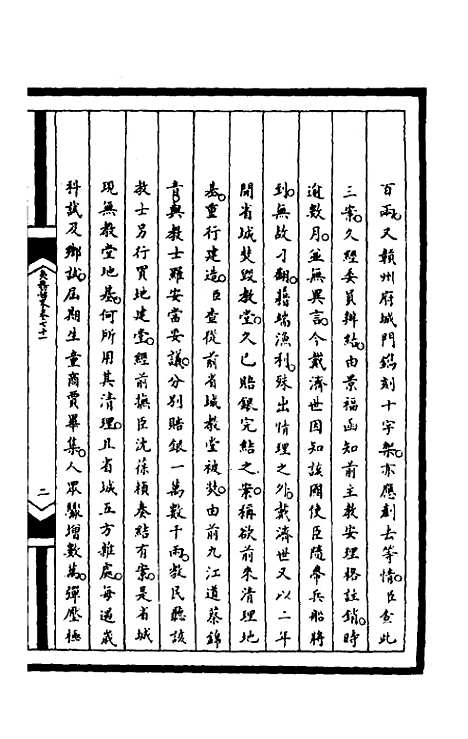 百兩又贛州府城門鐫刻十字架亦應剷去等情臣查此
三案久經委員辦結由景福函知前主教安理格註銷時
逾數月並無異言今戴濟世因知該國使臣隨帶兵船將
到無故刁翻藉端漁利殊出情理之外戴濟世又以二年
間省城焚毀教堂久已賠銀完結之案稱欲前來清理地
基重行建造臣查從前省城教堂被焚由前九江道蔡錦
青與教士羅安當妥議分別賠銀一萬數千兩教民聽該
教士另行買地建堂經前撫臣沈葆楨奏結有案是省城
現無教堂地基何所用其清理且省城五方雜處每遇歲
科試及鄉試屆期生童商賈畢集人眾驟增數萬彈壓極
二